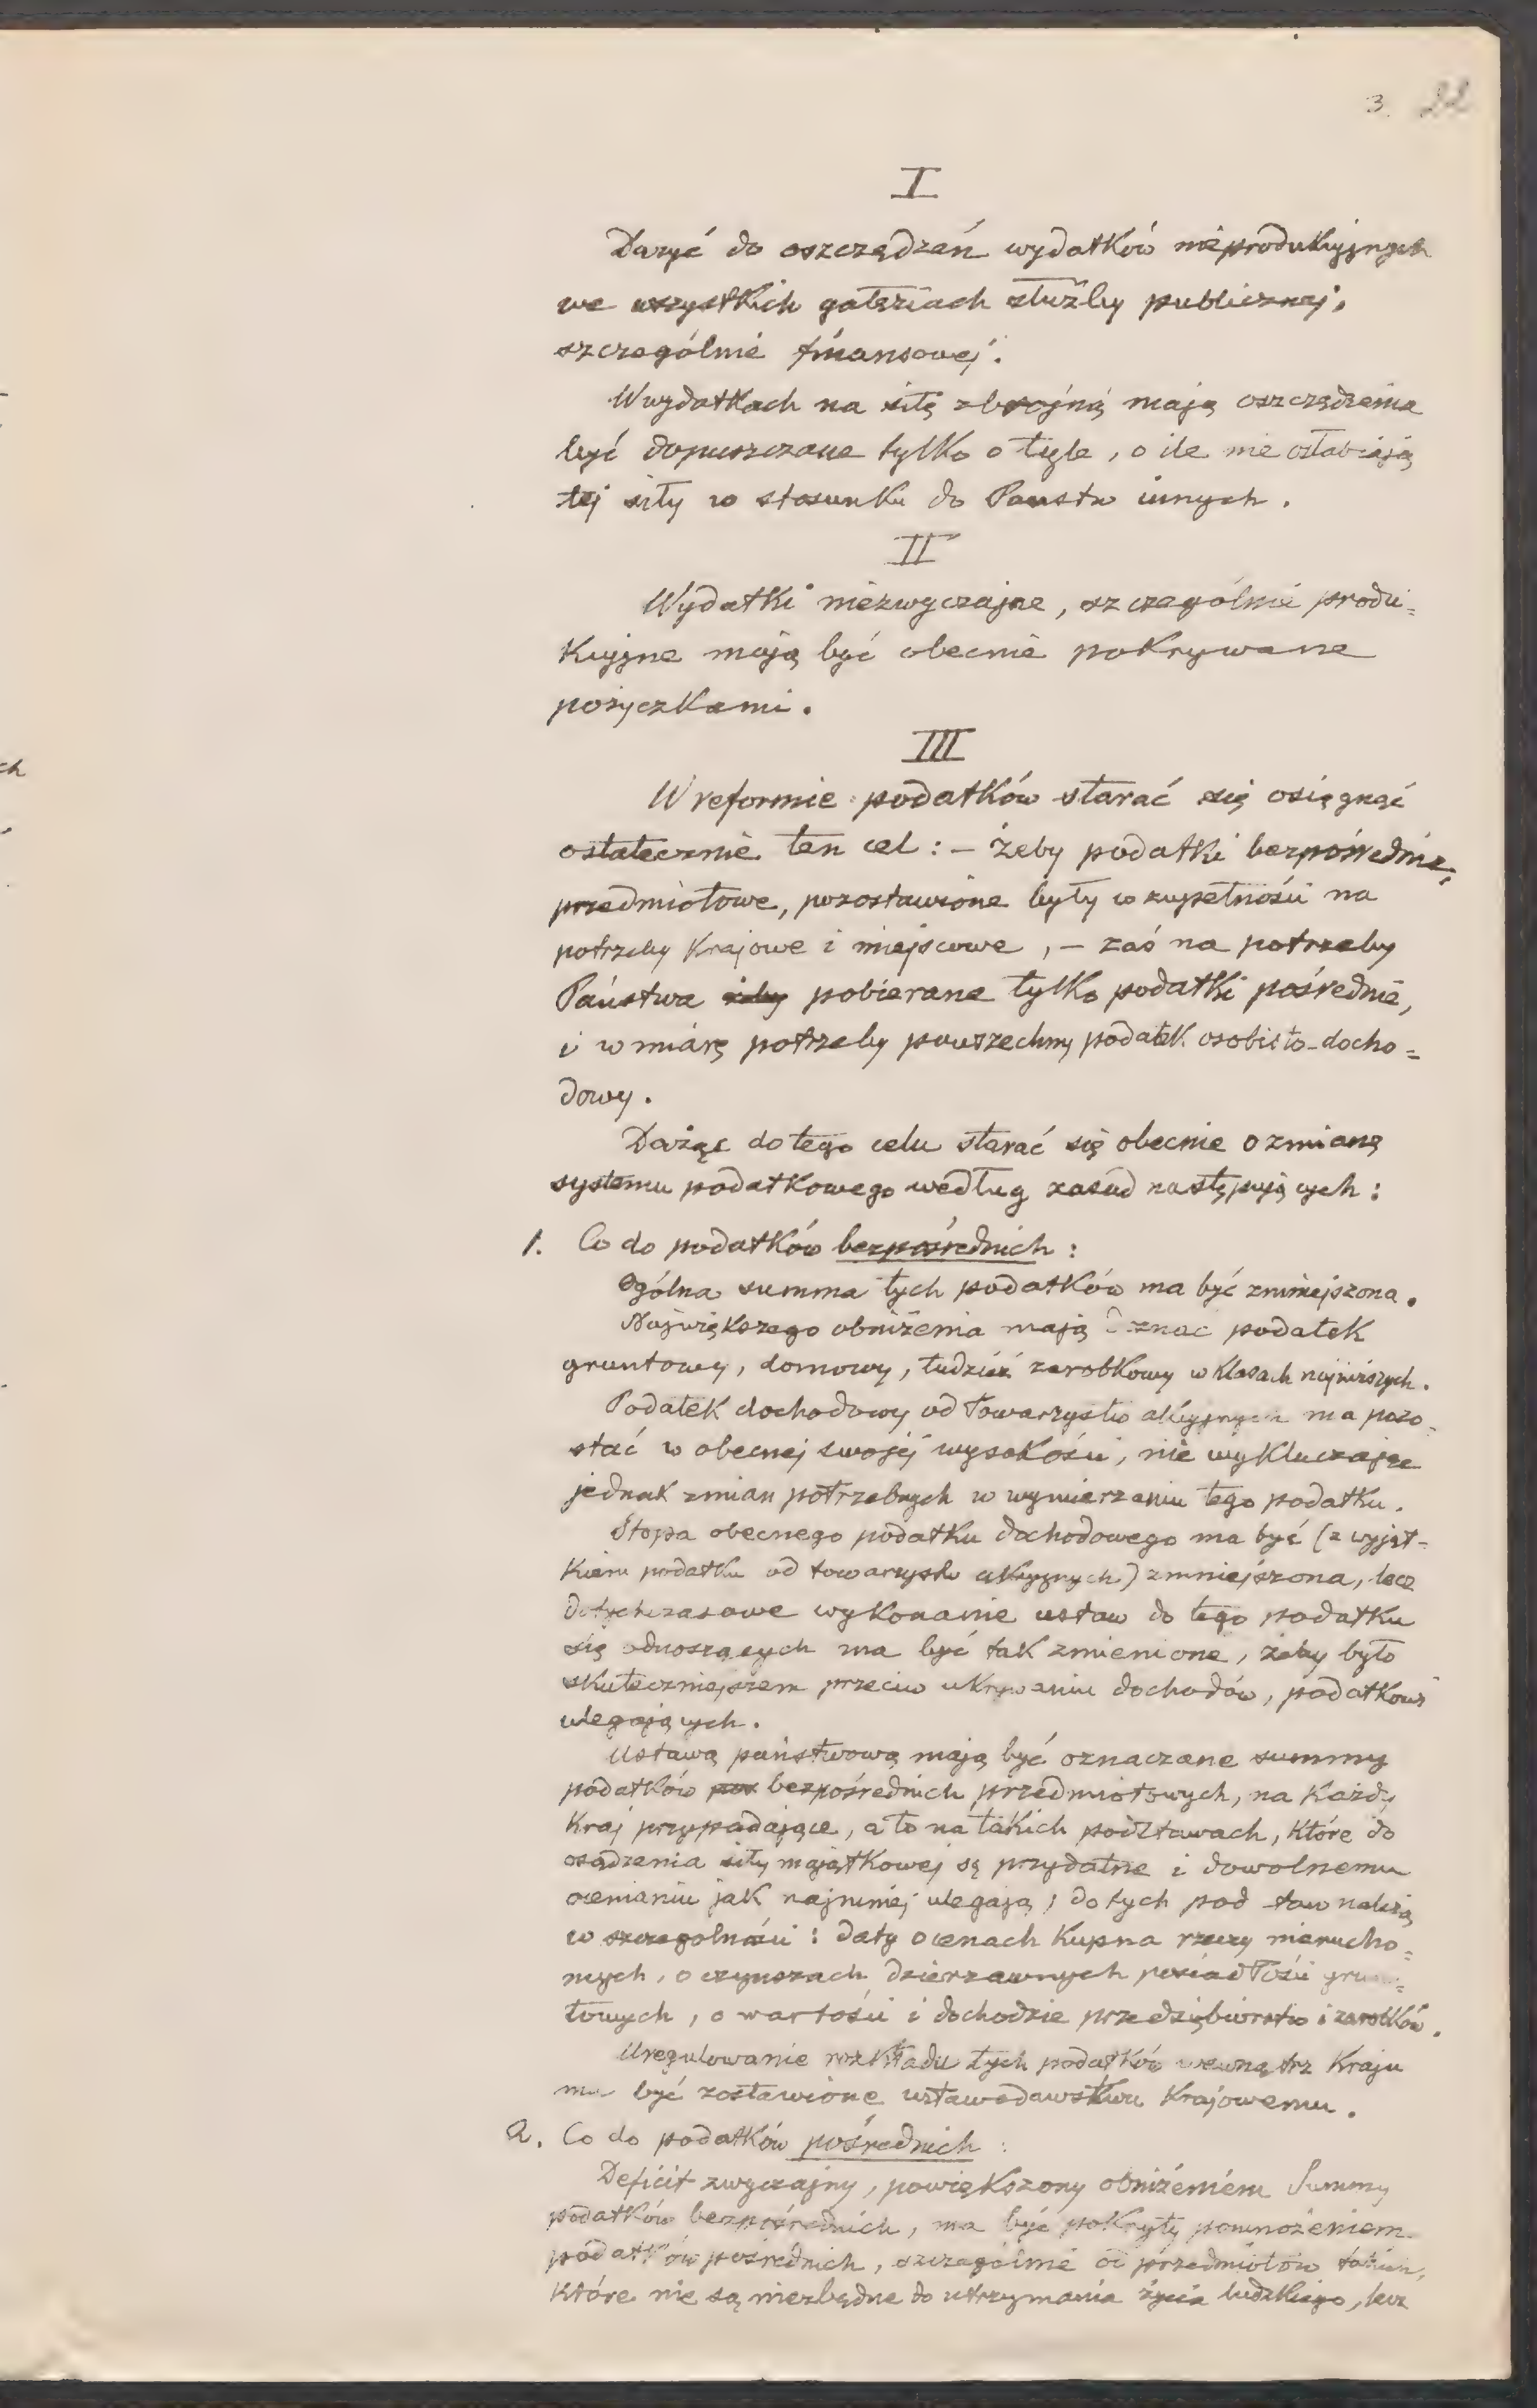 3. 22
I
Dążyć do oszczędzań wydatków nieprodukcyjnych
we wszystkich gałęziach służby publicznej,
szczególnie finansowej.
W wydatkach na siłę zbrojną mają oszczędzenia
być dopuszczane tylko o tyle, o ile nie osłabiają
tej siły w stosunku do Państw innych.
II
Wydatki niezwyczajne, szczególnie produ=
kcyjne mają być obecnie pokrywane
pożyczkami.
III
W reformie podatków starać się osięgnąć
ostatecznie ten cel: – żeby podatki bezpośrednie,
przedmiotowe, pozostawione były w zupełności na
potrzeby krajowe i miejscowe, – zaś na potrzeby
Państwa żeby pobierane tylko podatki pośrednie,
i w miarę potrzeby powszechny podatek osobisto-docho=
dowy.
Dążąc do tego celu starać się obecnie o zmianę
systemu podatkowego według zasad następujących:
1. Co do podatków bezpośrednich:
Ogólna summa tych podatków ma być zmniejszona.
Największego obniżenia mają doznać podatek
gruntowy, domowy, tudzież zarobkowy w klasach najniższych.
Podatek dochodowy od Towarzystw akcyjnych ma pozo=
stać w obecnej swojej wysokości, nie wykluczając
jednak zmian potrzebnych w wymierzaniu tego podatku.
Stopa obecnego podatku dochodowego ma być (z wyjąt-
kiem podatku od towarzystw akcyjnych) zmniejszona, lecz
dotychczasowe wykonanie ustaw do tego podatku
się odnoszących ma być tak zmienione, żeby było
skuteczniejszem przeciw ukrywaniu dochodów, podatkowi
ulegających.
Ustawą państwową mają być oznaczane summy
podatków bezpośrednich przedmiotowych, na każdy
kraj przypadające, a to na takich podstawach, które do
osądzenia siły majątkowej są przydatne i dowolnemu
ocenianiu jak najmniej ulegają; do tych podstaw należą
w szczególności: daty o cenach kupna rzeczy nierucho=
mych, o czynszach dzierżawnych posiadłości grun=
towych, o wartości i dochodzie przedsiębiorstw i zarobków.
Uregulowanie rozkładu tych podatków wewnątrz kraju
ma być zostawione ustawodawstwu krajowemu.
2. Co do podatków pośrednich:
Deficit zwyczajny, powiększony obniżeniem Summy
podatków bezpośrednich, ma być pokryty pomnożeniem
podatków pośrednich, szczególnie od przedmiotów takich,
które nie są niezbędne do utrzymania życia ludzkiego, lecz